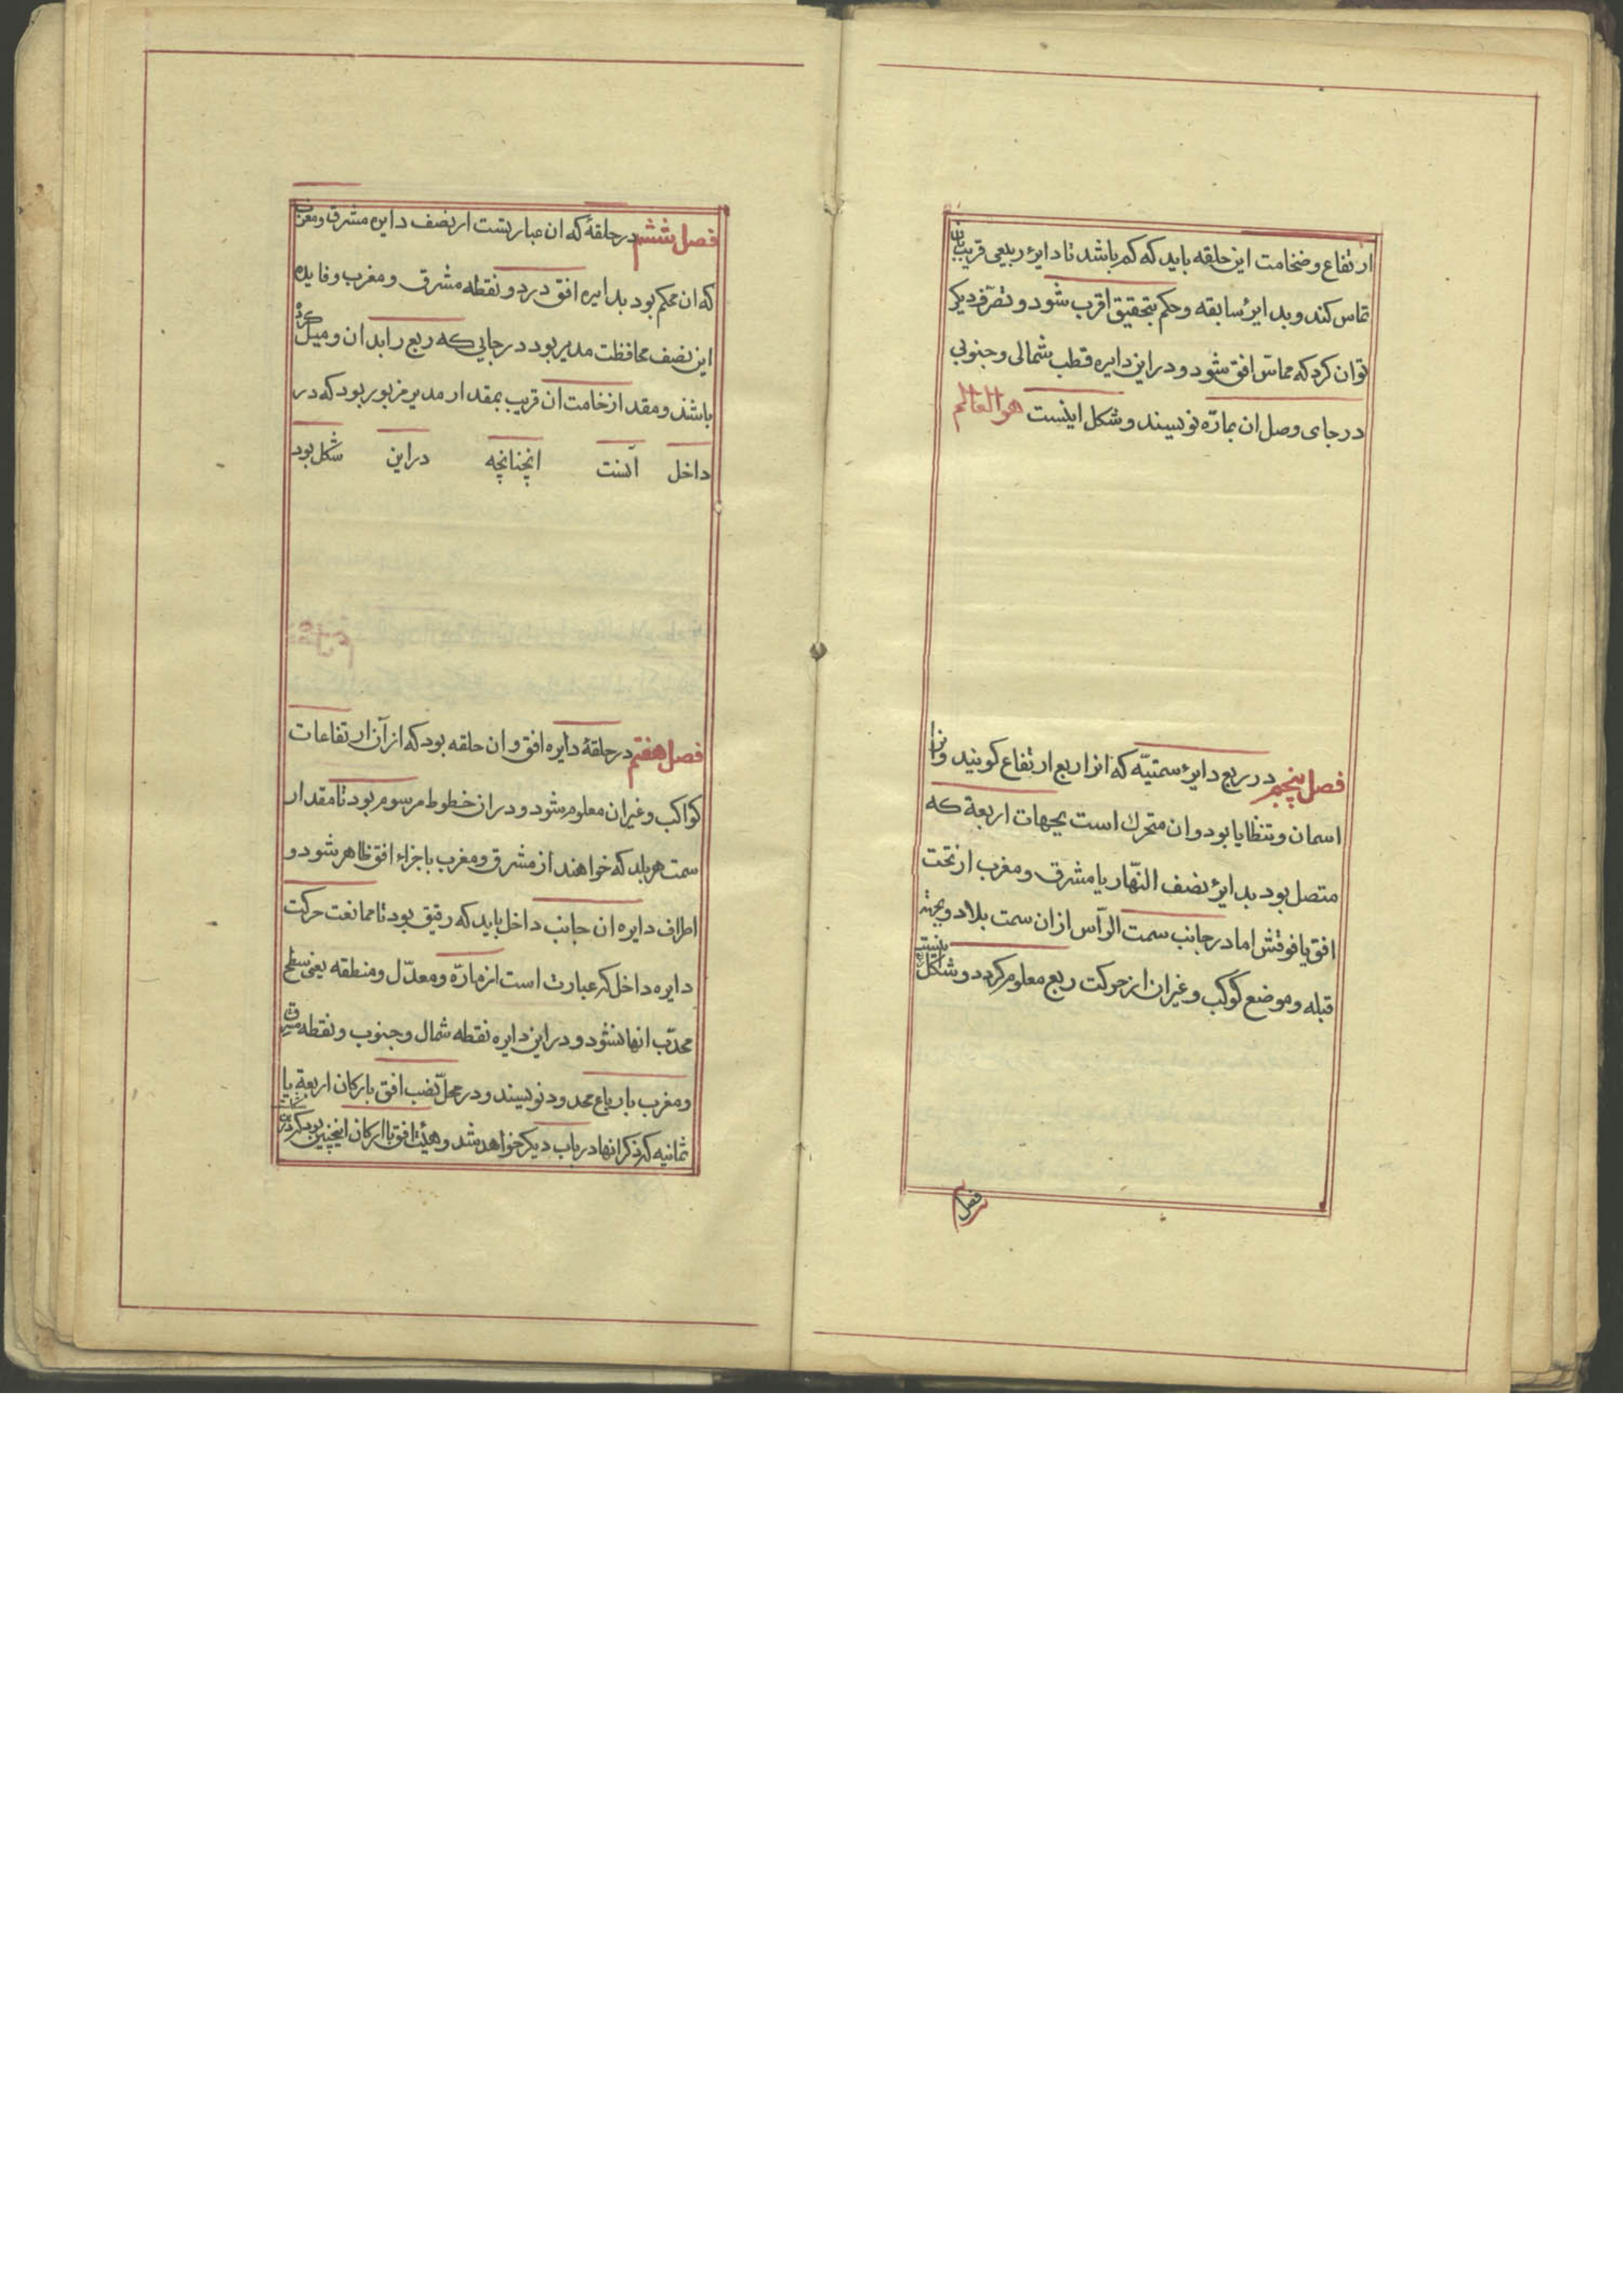 ارتفاع و ضخامت این حلقه باید که کم باشد تا دایرهٔ ربعی قریب بان
تماس کند و بدایرهٔ سابقه و حکم بتحقیق اقرب شود و تصرف دیکر
توان کرد که مماسّ افق شود و در این دایره قطب شمالی و جنوبی
در جای وصل ان بمارّه نویسند و شکل اینست هو العالم
فصل پنجم در ربع دایرهٔ سمتیّه که انرا ربع ارتفاع کویند وانرا
اسمان و تنظایا بود وان متحرك است بجهات اربعة که
متصل بود بدایرهٔ نصف النّهار یا مشرق و مغرب از تحت
افق یا فوقش اما در جانب سمت الرّأس ازان سمت بلاد و بجهته
قبله و موضع کوکب و غیران از حرکت ربع معلوم کردد و شکل
فصل
فصل ششم در حلقهٔ که ان عبارتست از نصف دایره مشرق و مغرب
که ان محکم بود بدایره افق در دو نقطه مشرق و مغرب و فایده
این نصف محافظت مدیر بود در جایی که ربع را بدان و میل کرده
باشند و مقدار ضخامت ان قریب بمقدار مدیر مزبور بود که در
داخل آنست انچنانچه دراین شکل بود
فصل هفتم در حلقهٔ دایره افق و ان حلقه بود که از آن ارتفاعات
کواکب و غیران معلوم شود و دران خطوط مرسوم بود تا مقدار
سمت هر بلد که خواهند از مشرق و مغرب باجزاء افق ظاهر شود و
اطراف دایره ان جانب داخل باید که رقیق بود تا ممانعت حرکت
دایره داخل که عبارت است از مارّه و معدّل و منطقه یعنی سطح
محدّب انها نشود و در این دایره نقطه شمال و جنوب و نقطه مشرق
و مغرب بارباع محدود نویسند و در محلّ نصب افق بارکان اربعة یا
ثمانیه که ذکر انها در باب دیکر خواهد شد و هیئت افق با ارکان اینچنین بود